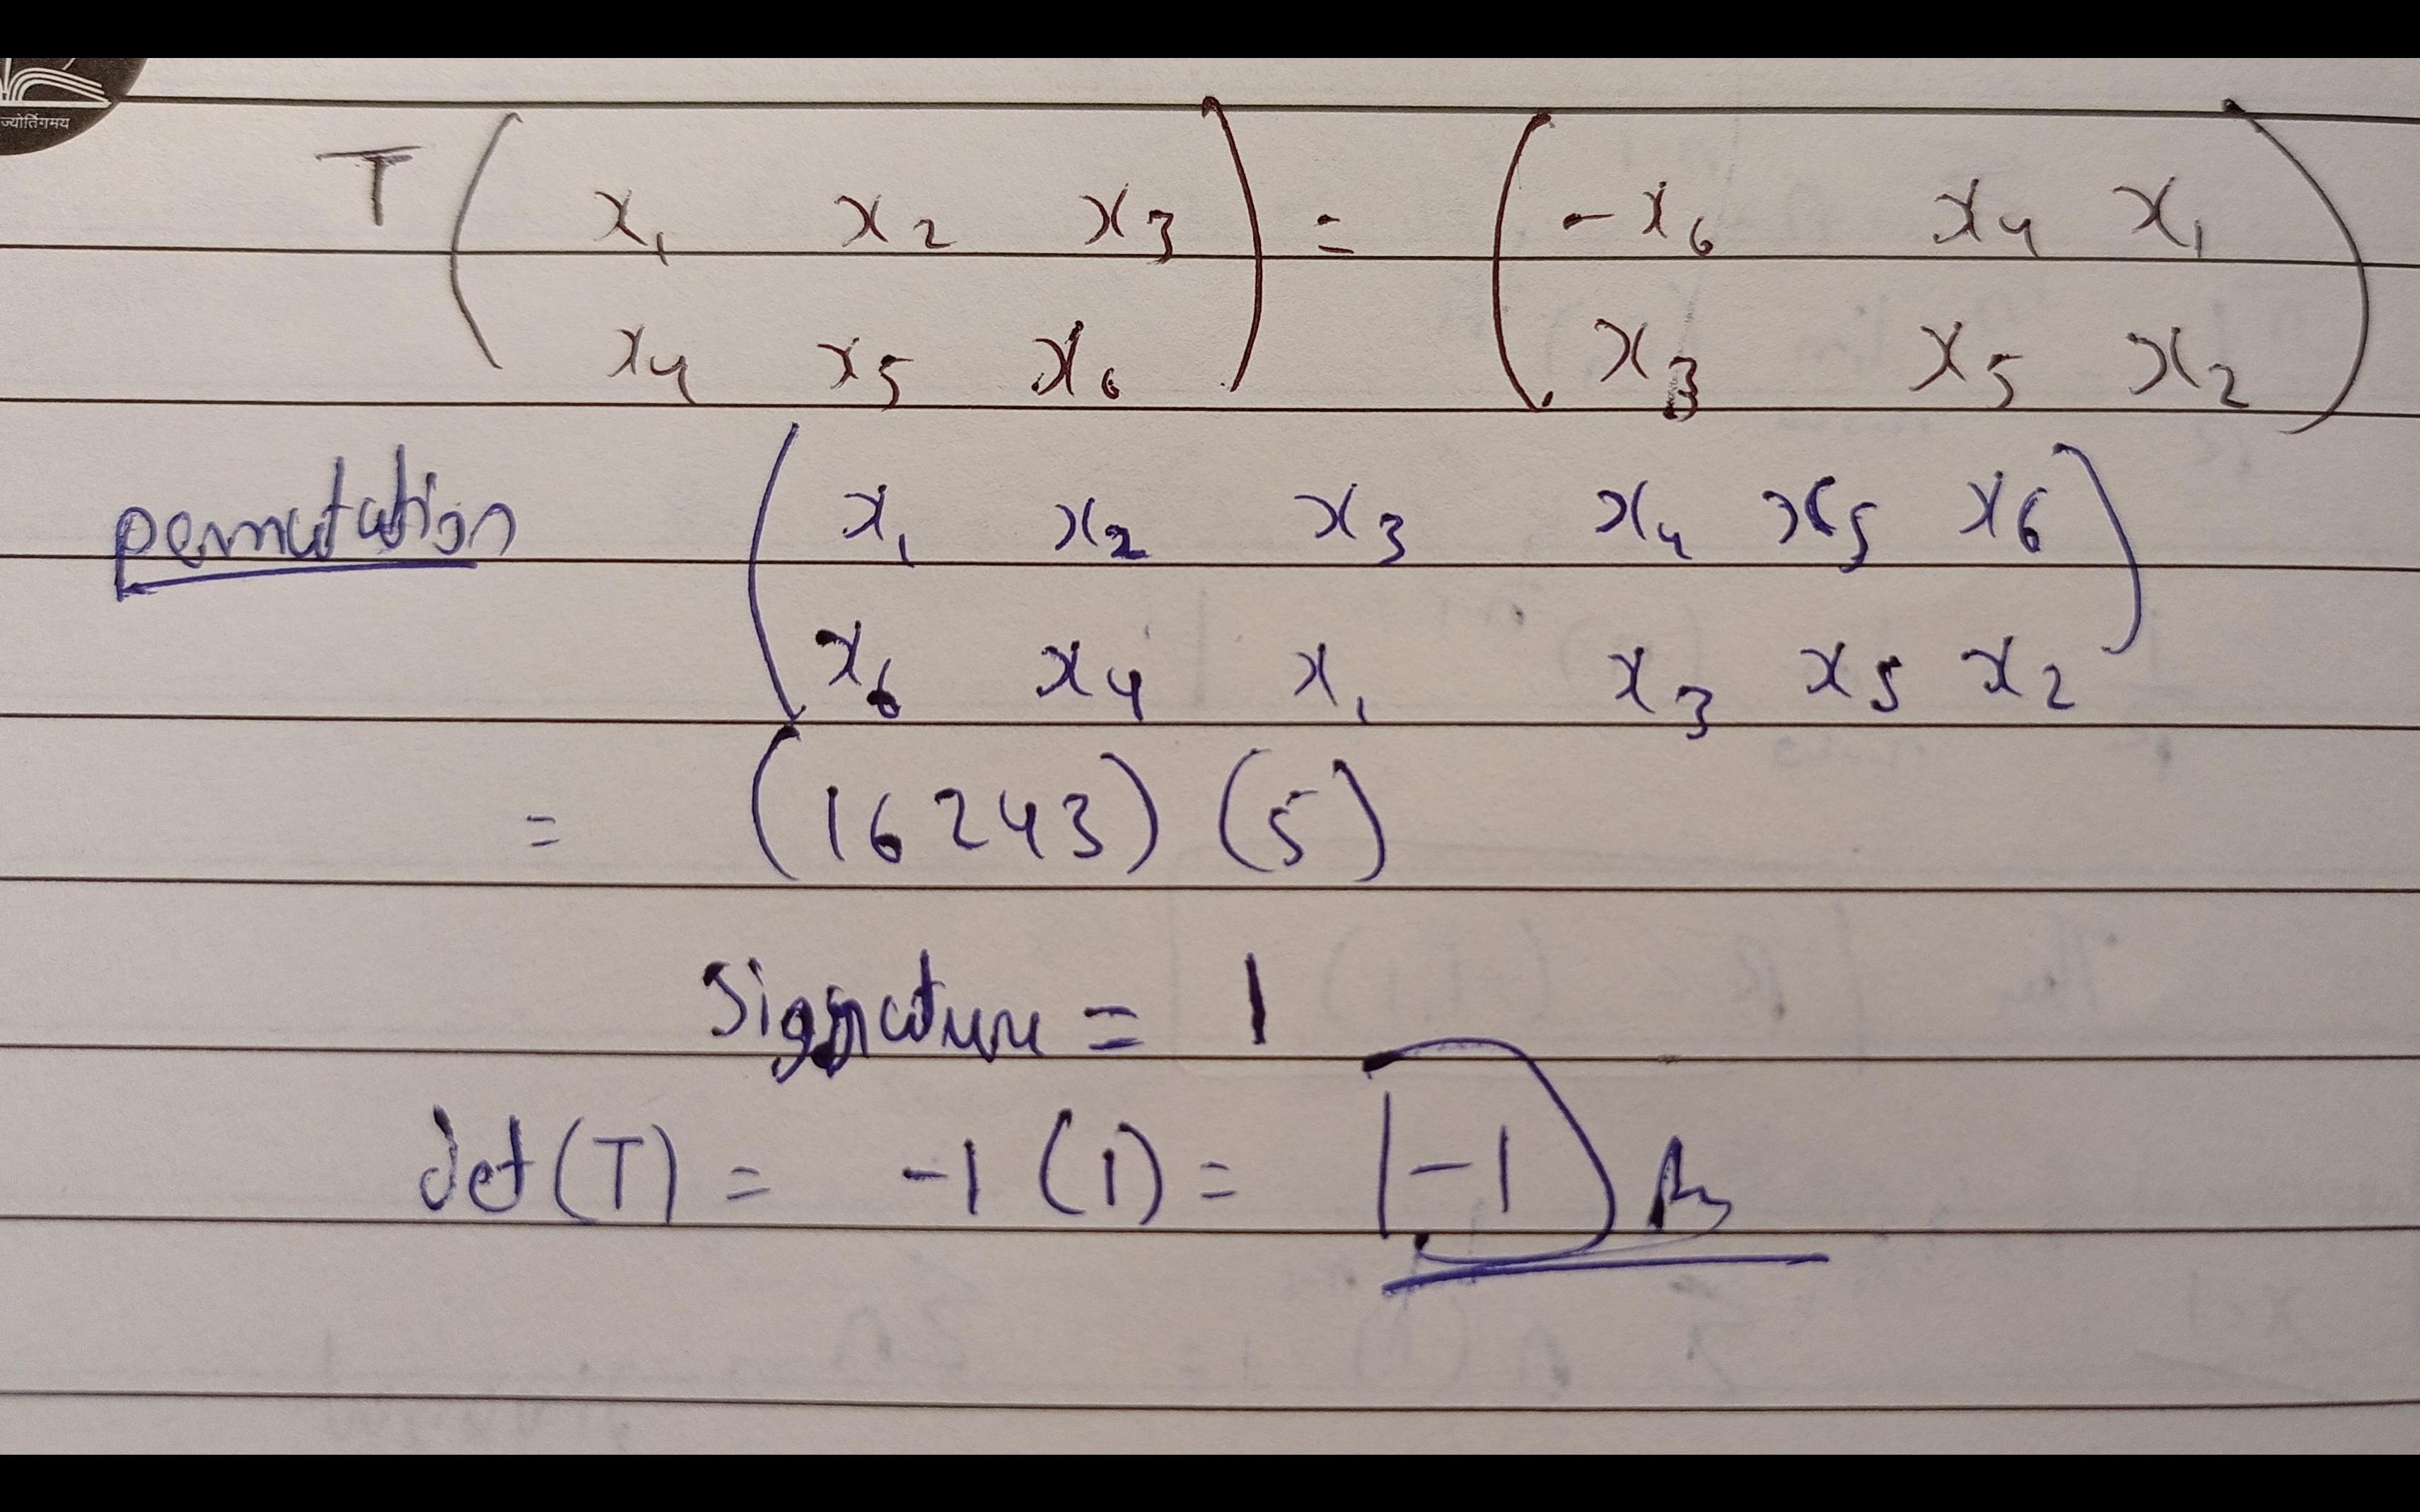 ज्योर्तिगमय
T ( x₁ x₂ x₃ ) = ( -x₆ x₄ x₁ )
( x₄ x₅ x₆ ) ( x₃ x₅ x₂ )
permutation ( x₁ x₂ x₃ x₄ x₅ x₆ )
( x₆ x₄ x₁ x₃ x₅ x₂ )
= (16243) (5)
Signature = 1
det(T) = -1 (1) = -1